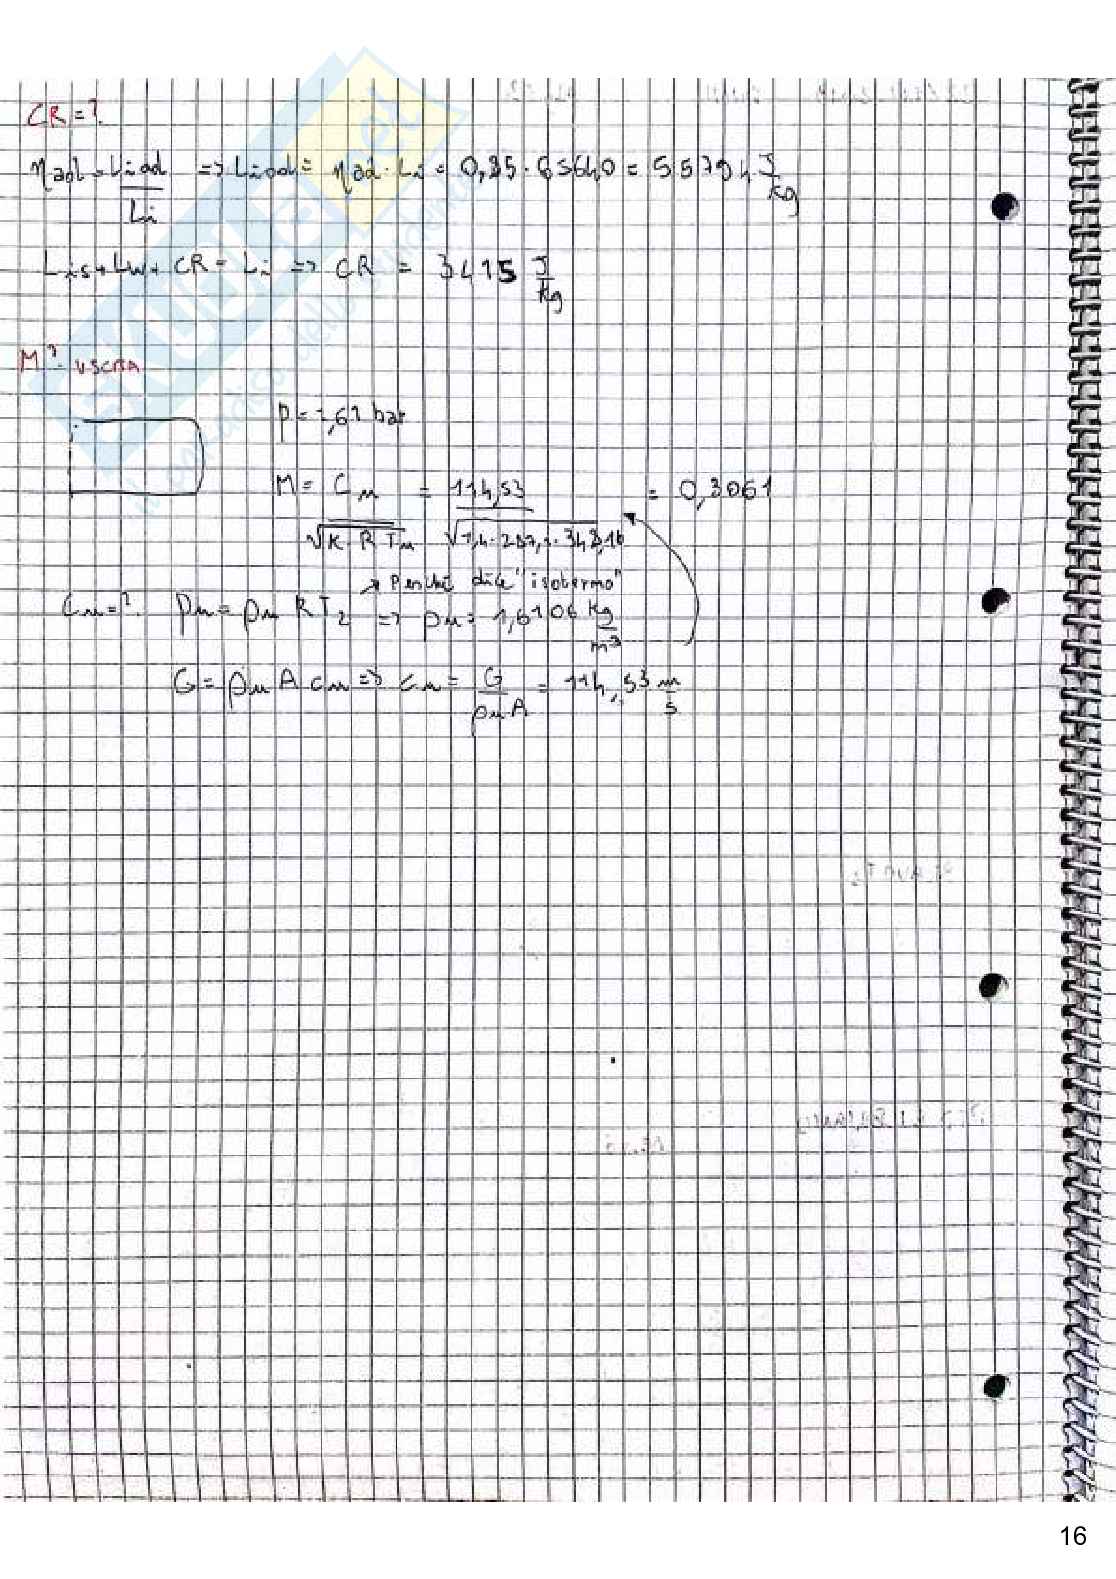 CR = ?
η ad = Li ad / Li => Li ad = η ad · Li = 0,85 · 65640 = 55794 J/kg
Lis + Lw + CR = Li => CR = 3415 J/kg
M? USCITA
p = 1,61 bar
M = Cu / √K·R·Tu = 114,53 / √1,4·287,1·348,16 = 0,3061
↗ Perché dice "isotermo"
Cu = ? pu = ρu R T2 => ρu = 1,6106 kg/m³
G = ρu A cu => cu = G / ρu·A = 114,53 m/s
16